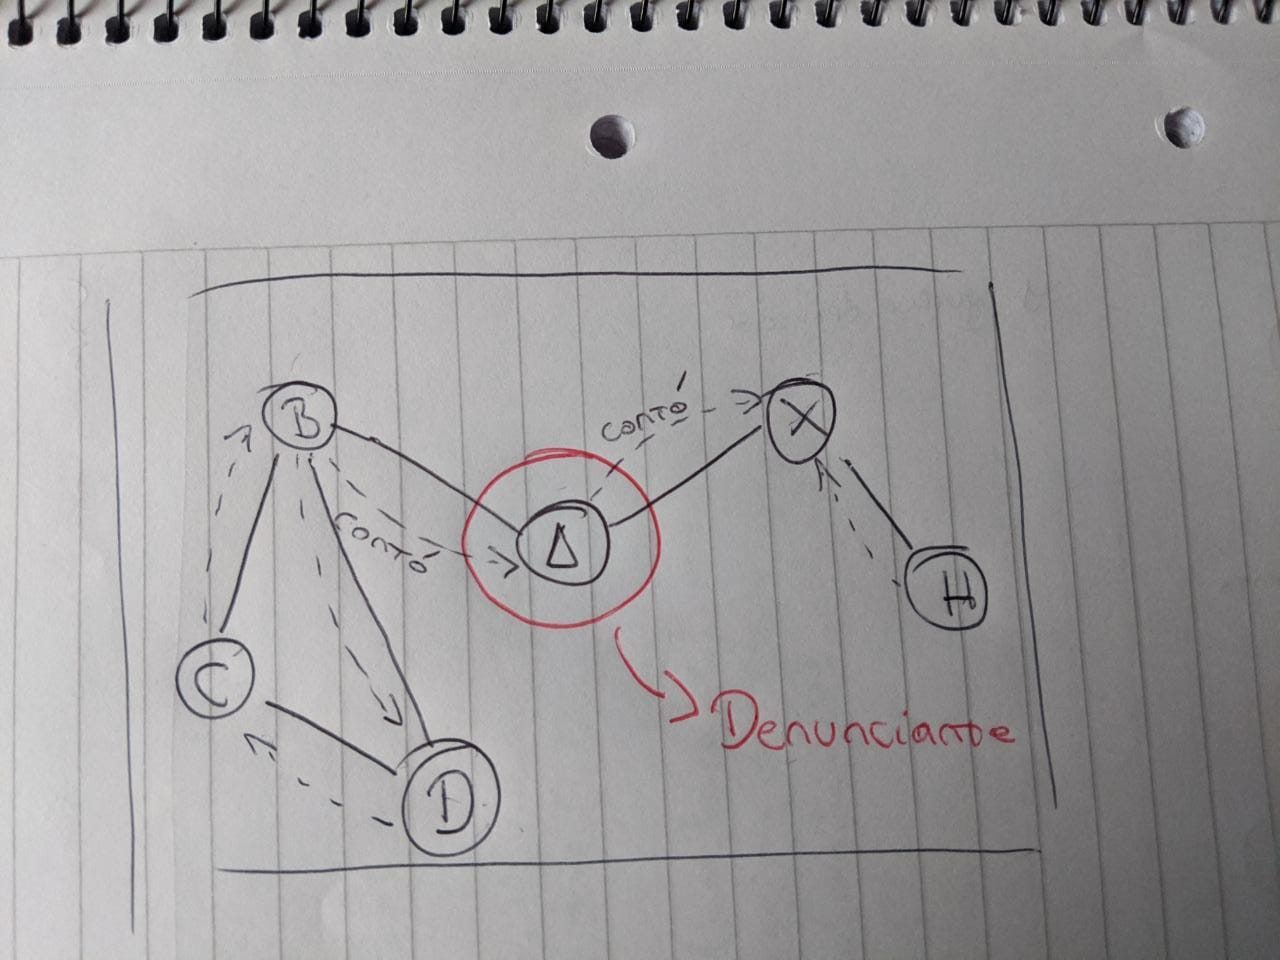 contó
B
X
contó
Δ
H
C
Denunciante
D